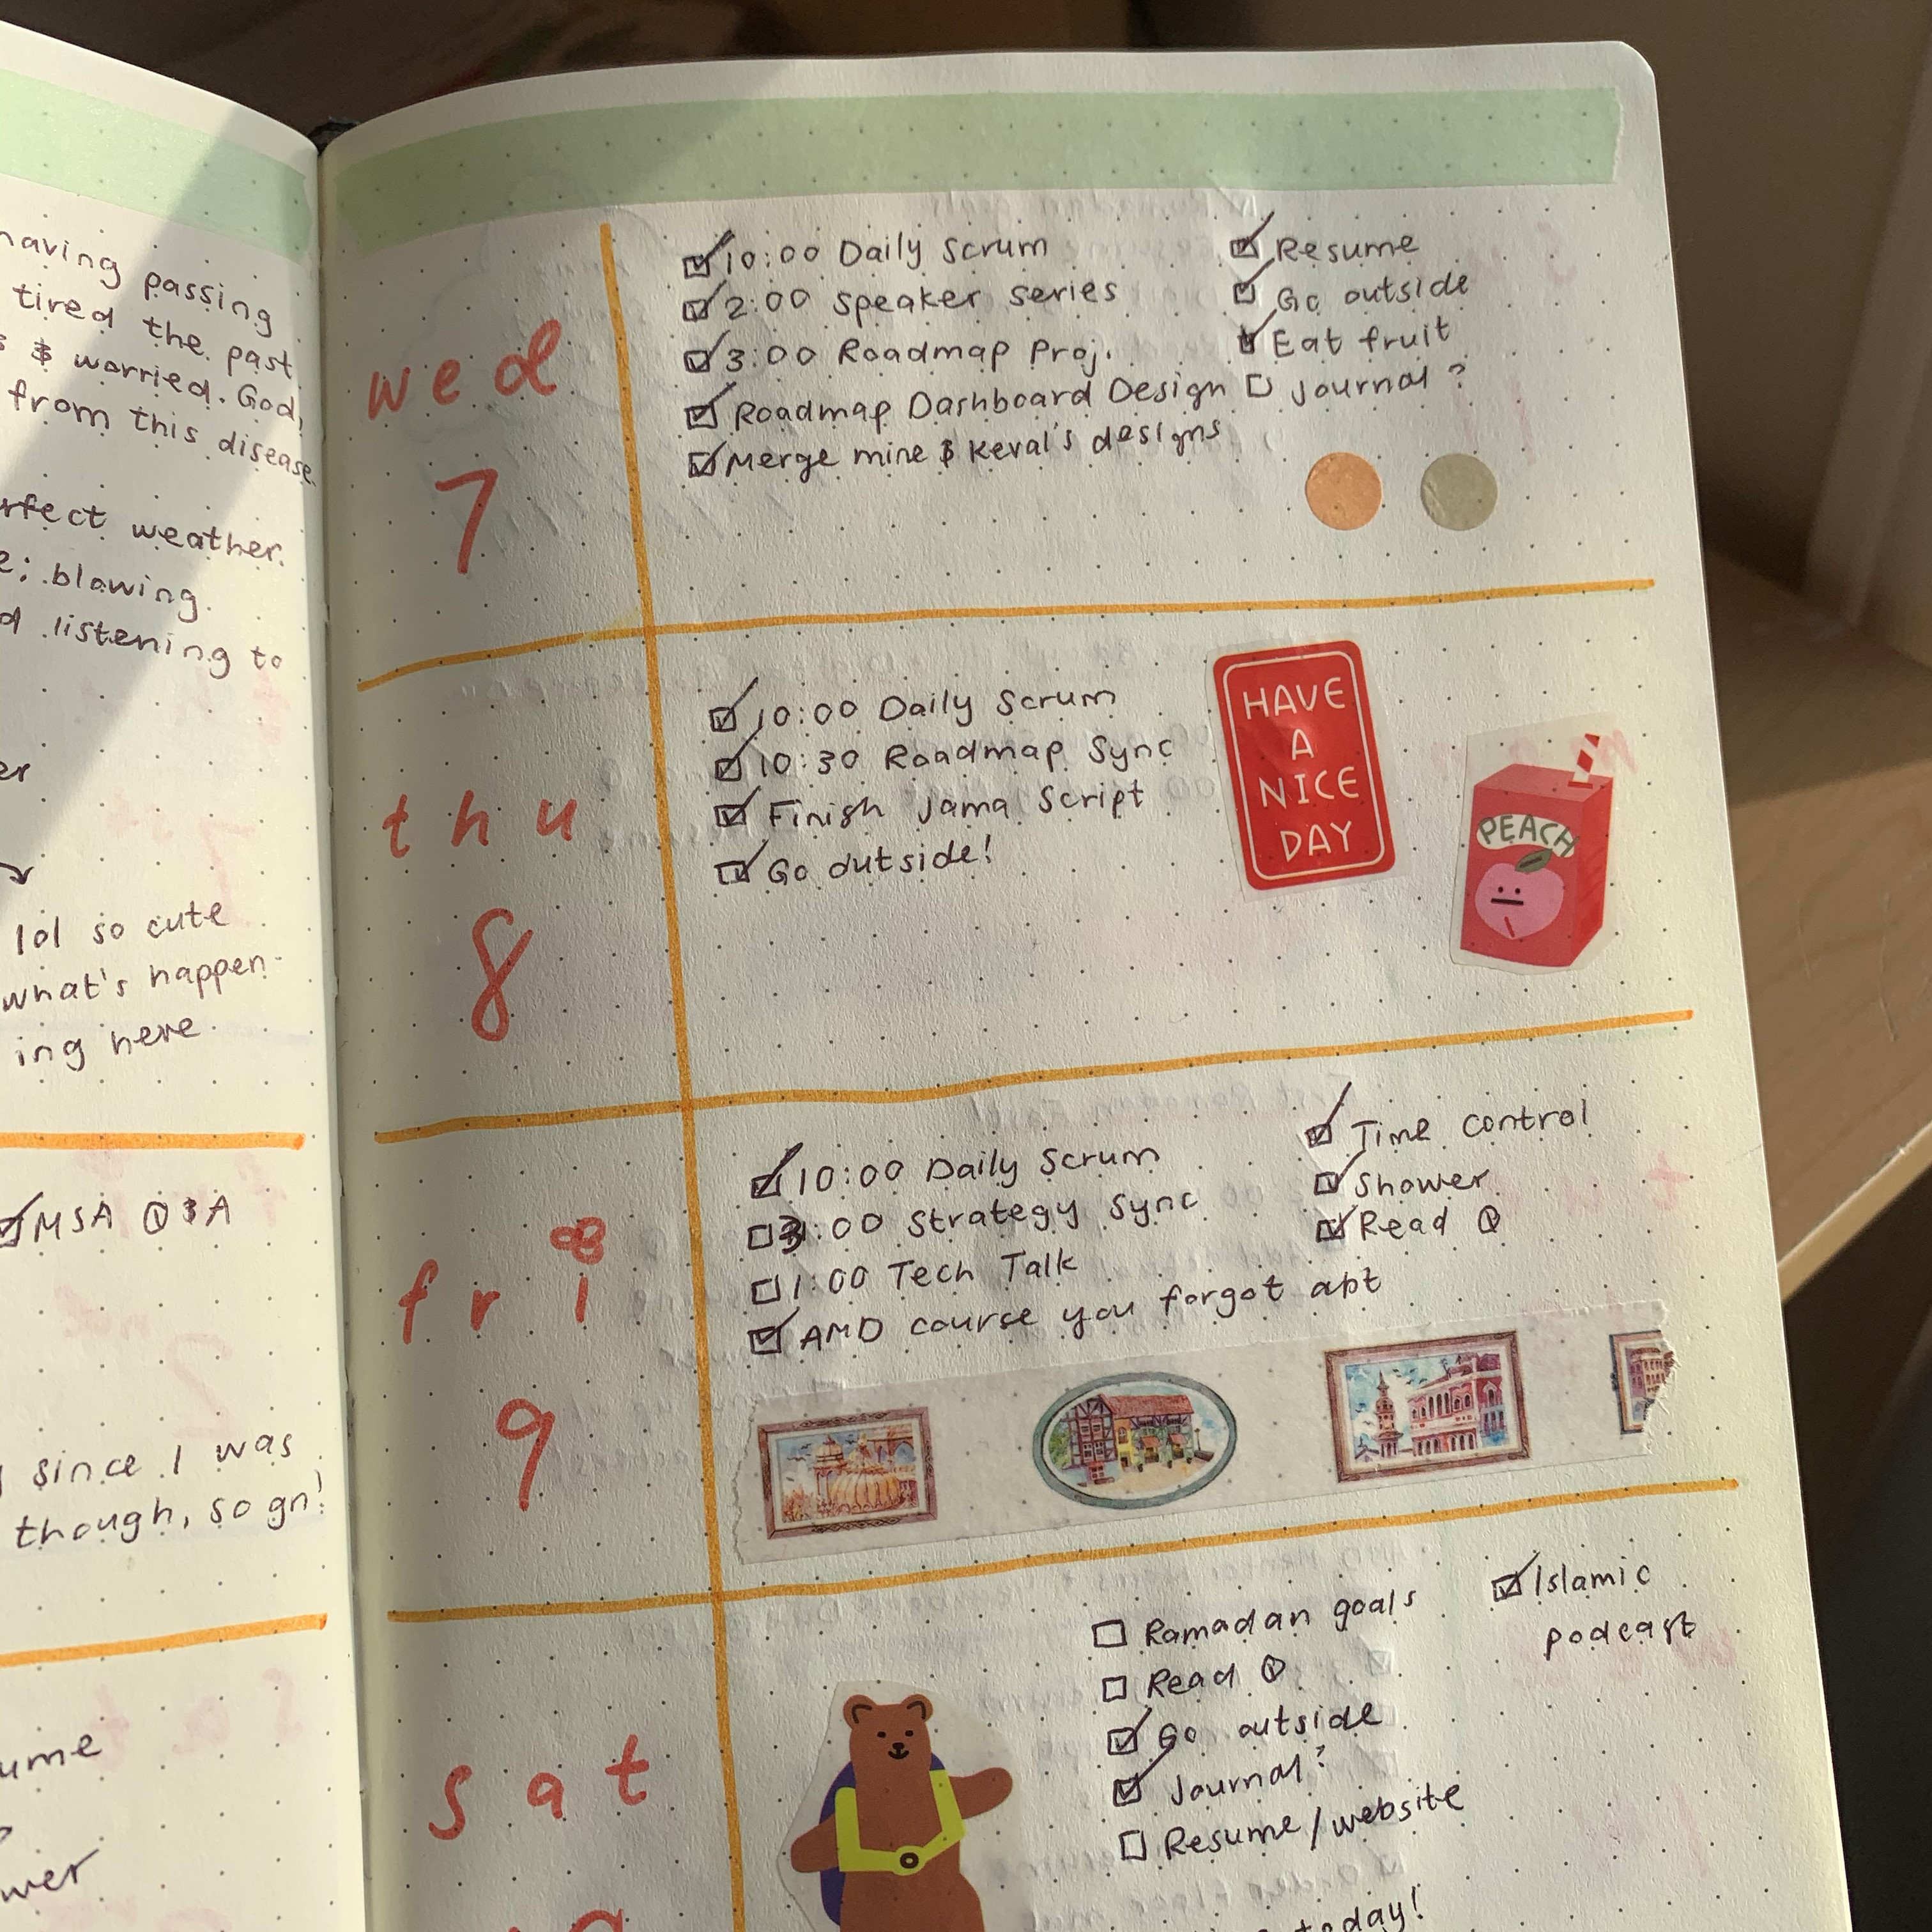 having passing
tired the past
$ worried. God,
from this disease.
weather.
blowing.
listening to
lol so cute
what's happen-
ing here
☑ MSA Q&A
since I was
though, so gn!
wed
7
☑ 10:00 Daily Scrum
☑ 2:00 Speaker Series
☑ 3:00 Roadmap Proj.
☑ Roadmap Dashboard Design
☑ Merge mine & Keval's designs
☑ Resume
☑ Go outside
☑ Eat fruit
☐ Journal?
thu
8
☑ 10:00 Daily Scrum
☑ 10:30 Roadmap Sync
☑ Finish Jama Script
☑ Go outside!
HAVE
A
NICE
DAY
PEACH
fri
9
☑ 10:00 Daily Scrum
☐ 3:00 Strategy Sync
☐ 1:00 Tech Talk
☑ AMD course you forgot abt
☑ Time control
☑ Shower
☑ Read Q
sat
☐ Ramadan goals
☐ Read Q
☑ Go outside
☑ Journal?
☐ Resume/website
☑ Islamic
podcast
today!